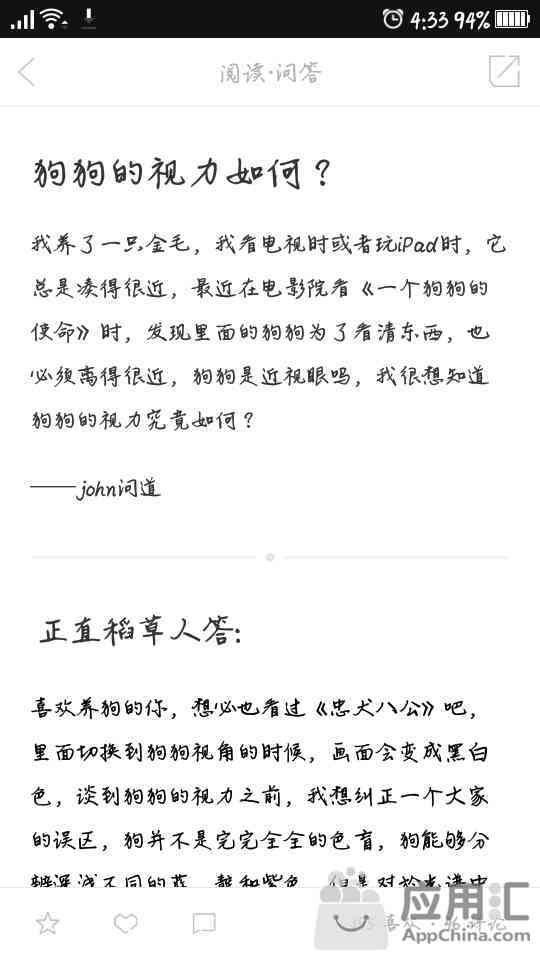 4:33 94%
阅读·问答
狗狗的视力如何？
我养了一只金毛，我看电视时或者玩iPad时，它
总是凑得很近，最近在电影院看《一个狗狗的
使命》时，发现里面的狗狗为了看清东西，也
必须离得很近，狗狗是近视眼吗，我很想知道
狗狗的视力究竟如何？
——john问道
正直稻草人答：
喜欢养狗的你，想必也看过《忠犬八公》吧，
里面切换到狗狗视角的时候，画面会变成黑白
色，谈到狗狗的视力之前，我想纠正一个大家
的误区，狗并不是完完全全的色盲，狗能够分
辨深浅不同的蓝、靛和紫色，但是对于光谱中
喜欢 · 96 评论
应用汇
AppChina.com